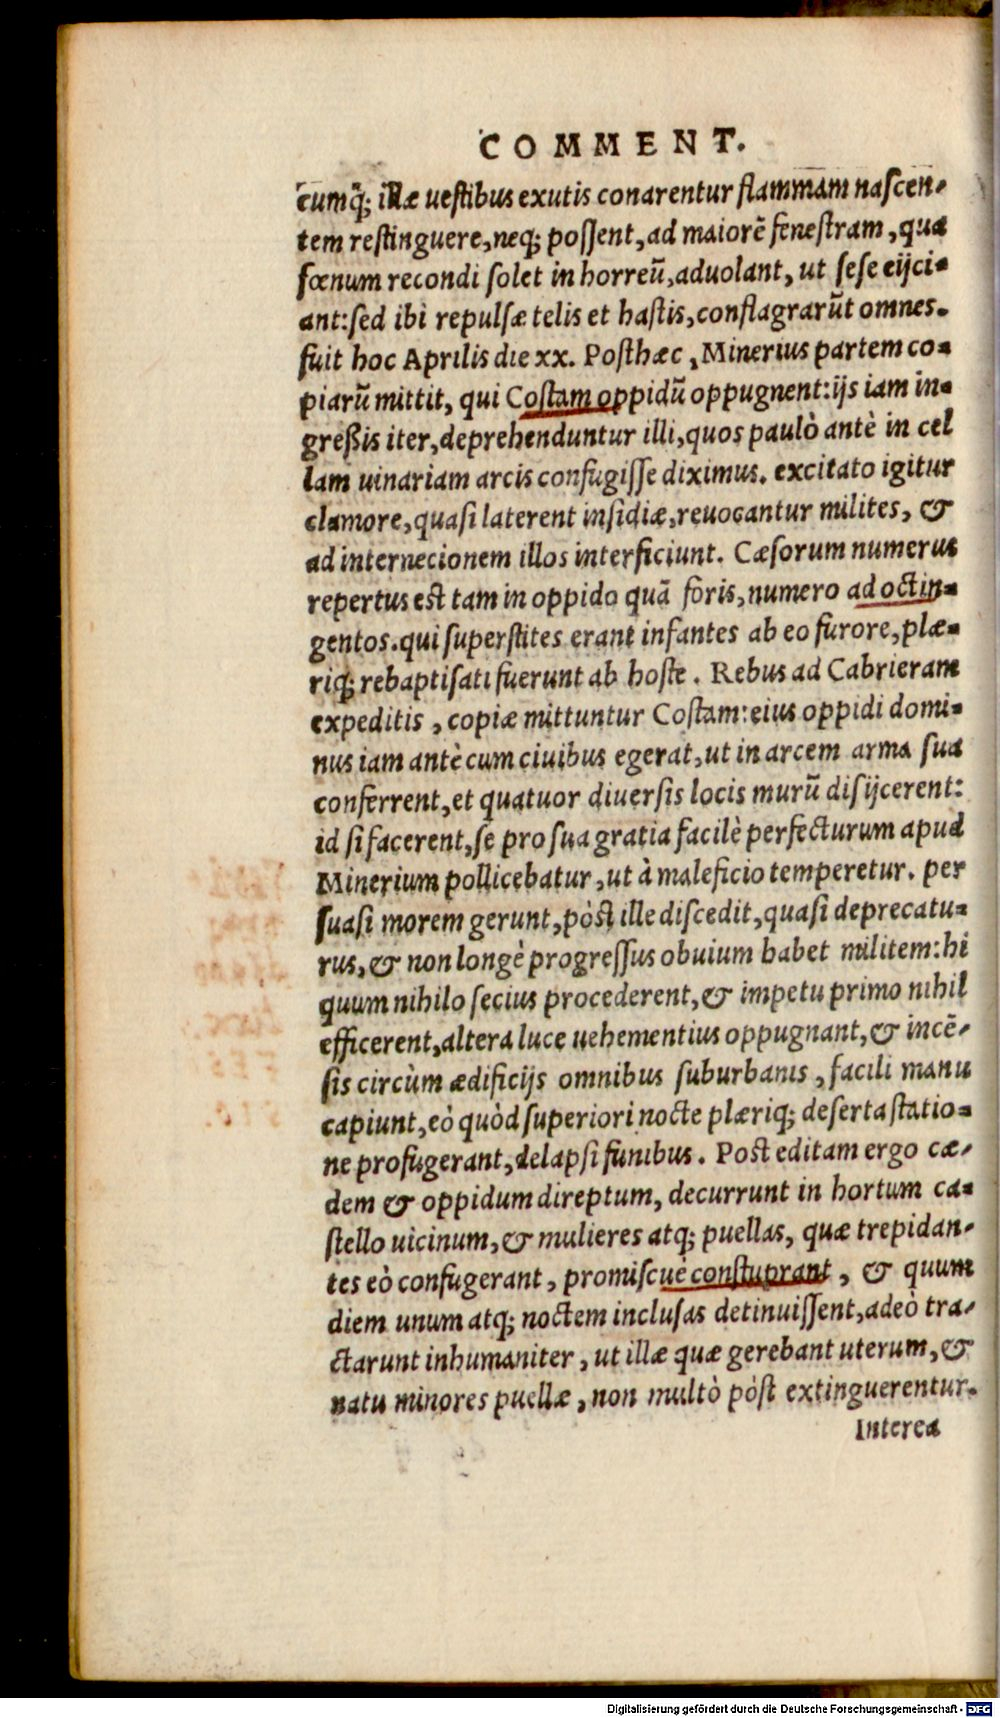 COMMENT.
cumq; illæ uestibus exutis conarentur flammam nascen-
tem restinguere, neq; possent, ad maiorē fenestram, qua
fœnum recondi solet in horreū, aduolant, ut sese eijci-
ant: sed ibi repulsæ telis et hastis, conflagrarūt omnes.
fuit hoc Aprilis die xx. Posthæc, Minerius partem co-
piarū mittit, qui Costam oppidū oppugnent: ijs iam in-
greßis iter, deprehenduntur illi, quos paulò antè in cel
lam uinariam arcis confugisse diximus. excitato igitur
clamore, quasi laterent insidiæ, reuocantur milites, &
ad internecionem illos interficiunt. Cæsorum numerus
repertus est tam in oppido quā foris, numero ad octin-
gentos. qui superstites erant infantes ab eo furore, plæ-
riq; rebaptisati fuerunt ab hoste. Rebus ad Cabrieram
expeditis, copiæ mittuntur Costam: eius oppidi domi-
nus iam antè cum ciuibus egerat, ut in arcem arma sua
conferrent, et quatuor diuersis locis murū disijcerent:
id si facerent, se pro sua gratia facilè perfecturum apud
Minerium pollicebatur, ut à maleficio temperetur. per
suasi morem gerunt, pòst ille discedit, quasi deprecatu-
rus, & non longè progressus obuium habet militem: hi
quum nihilo secius procederent, & impetu primo nihil
efficerent, altera luce uehementius oppugnant, & incē-
sis circùm ædificijs omnibus suburbanis, facili manu
capiunt, eò quòd superiori nocte plæriq; deserta statio-
ne profugerant, delapsi funibus. Post editam ergo cæ-
dem & oppidum direptum, decurrunt in hortum ca-
stello uicinum, & mulieres atq; puellas, quæ trepidan-
tes eò confugerant, promiscuè constuprant, & quum
diem unum atq; noctem inclusas detinuissent, adeò tra-
ctarunt inhumaniter, ut illæ quæ gerebant uterum, &
natu minores puellæ, non multò pòst extinguerentur.
Interea
Digitalisierung gefördert durch die Deutsche Forschungsgemeinschaft - DFG